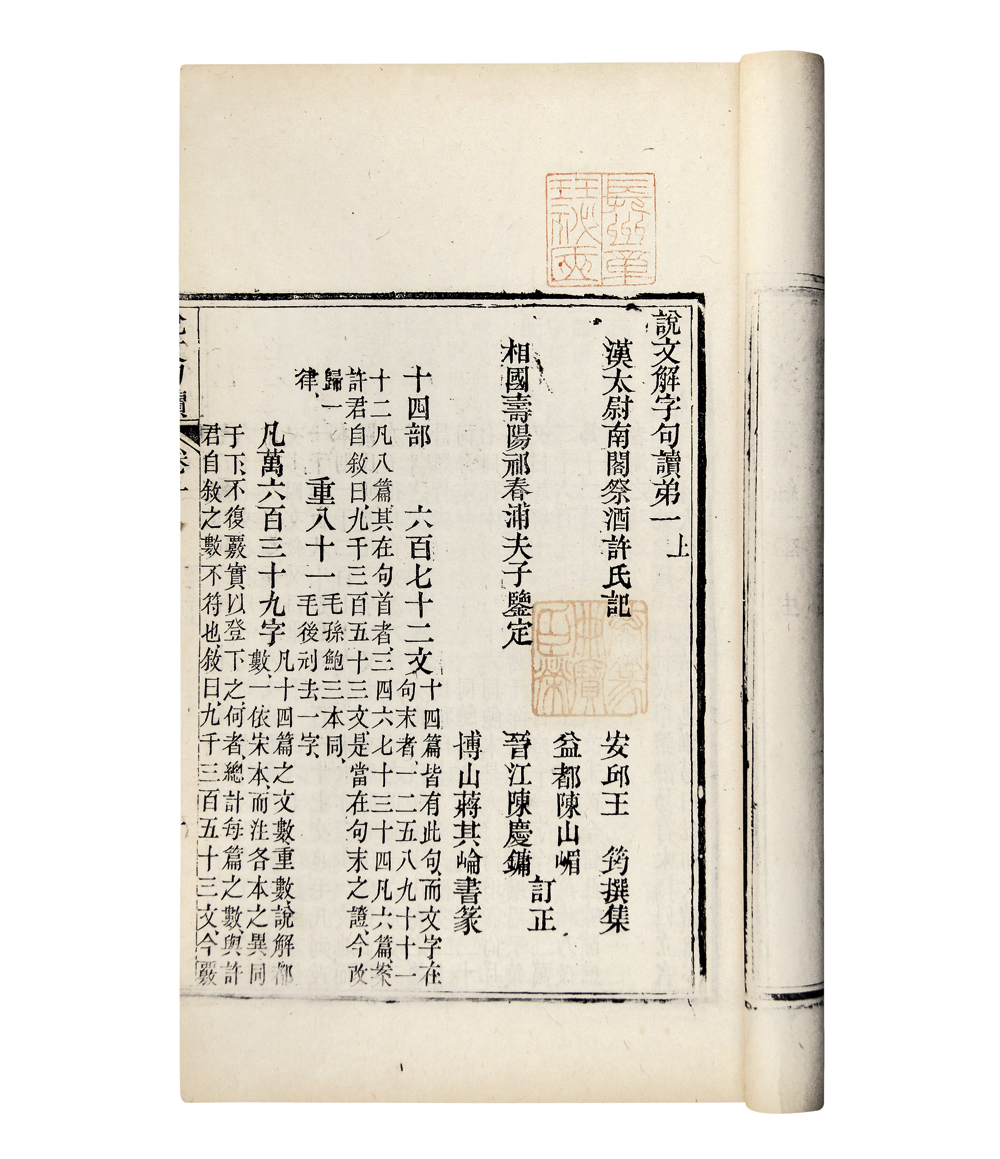 說文解字句讀弟一上
漢太尉南閣祭酒許氏記
安邱王　筠撰集
益都陳山嵋
相國壽陽祁春浦夫子鑒定
晉江陳慶鏞
訂正
博山蔣其崘書篆
十四部　六百七十二文
十四篇皆有此句、而文字在
句末者、一二五八九十十一
十二凡八篇其在句首者、三四六七十三十四凡六篇、案
許君自敘曰、九千三百五十三文、是當在句末之證、今改
歸一
律、
重八十一
毛孫鮑三本同、
毛後剜去一字、
凡萬六百三十九字
凡十四篇之文數重數、說解都
數、一依宋本、而注各本之異同
于下、不復覈實以登下之、何者、總計每篇之數、與許
君自敘之數不符也、敘曰、九千三百五十三文、今覈